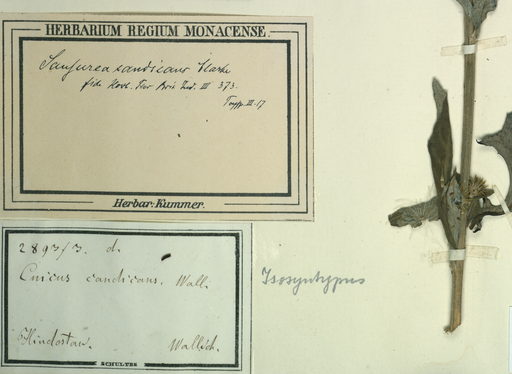 HERBARIUM REGIUM MONACENSE.
Saussurea candicans Clarke
fide Hook. Flor Brit Ind. III 373.
Herbar: Kummer.
2893/3. d.
Cnicus candicans. Wall.
Hindostan. Wallich.
SCHULTES
Isosyntypus